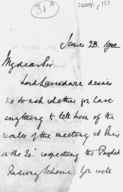 June 23. 1902
My dear Sir
Lord Lansdowne desires
me to ask whether you have
anything to tell him of the
results of the meeting at Paris
on the 20' respecting the Baghdad
Railway Scheme. You will